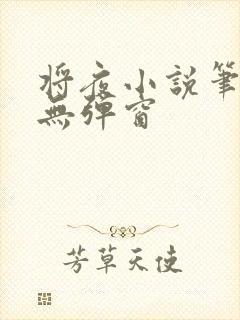 將夜小説筆
無彈窗
芳草天使